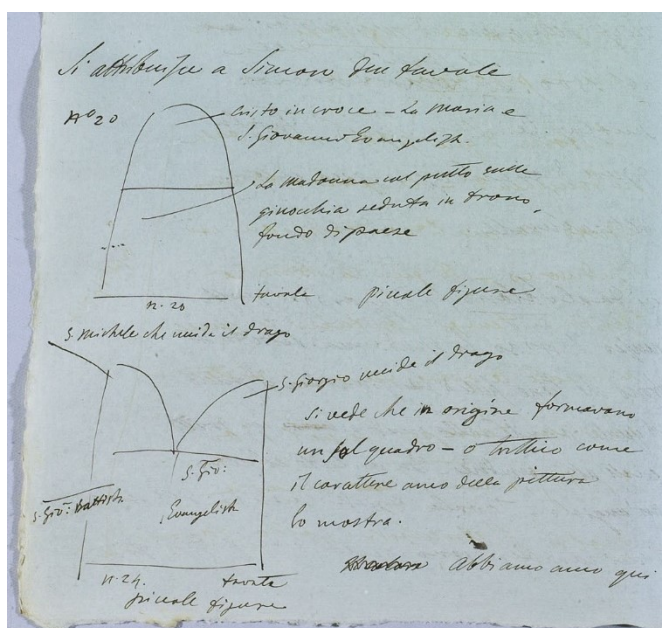 Si attribuisce a Simon due tavole
N° 20
Cristo in croce – La Maria e
S. Giovanni Evangelist.
La Madonna col putto sulle
ginocchia seduta in trono,
fondo di paese
n. 20
tavola piccole figure
S. Michele che uccide il drago
S. Giorgio uccide il drago
Si vede che in origine formavano
un sol quadro – o trittico come
il carattere anco della pittura
lo mostra.
S. Gio: Battista
S. Gio:
Evangelista
n. 24. tavola
piccole figure
Abbiamo anco qui